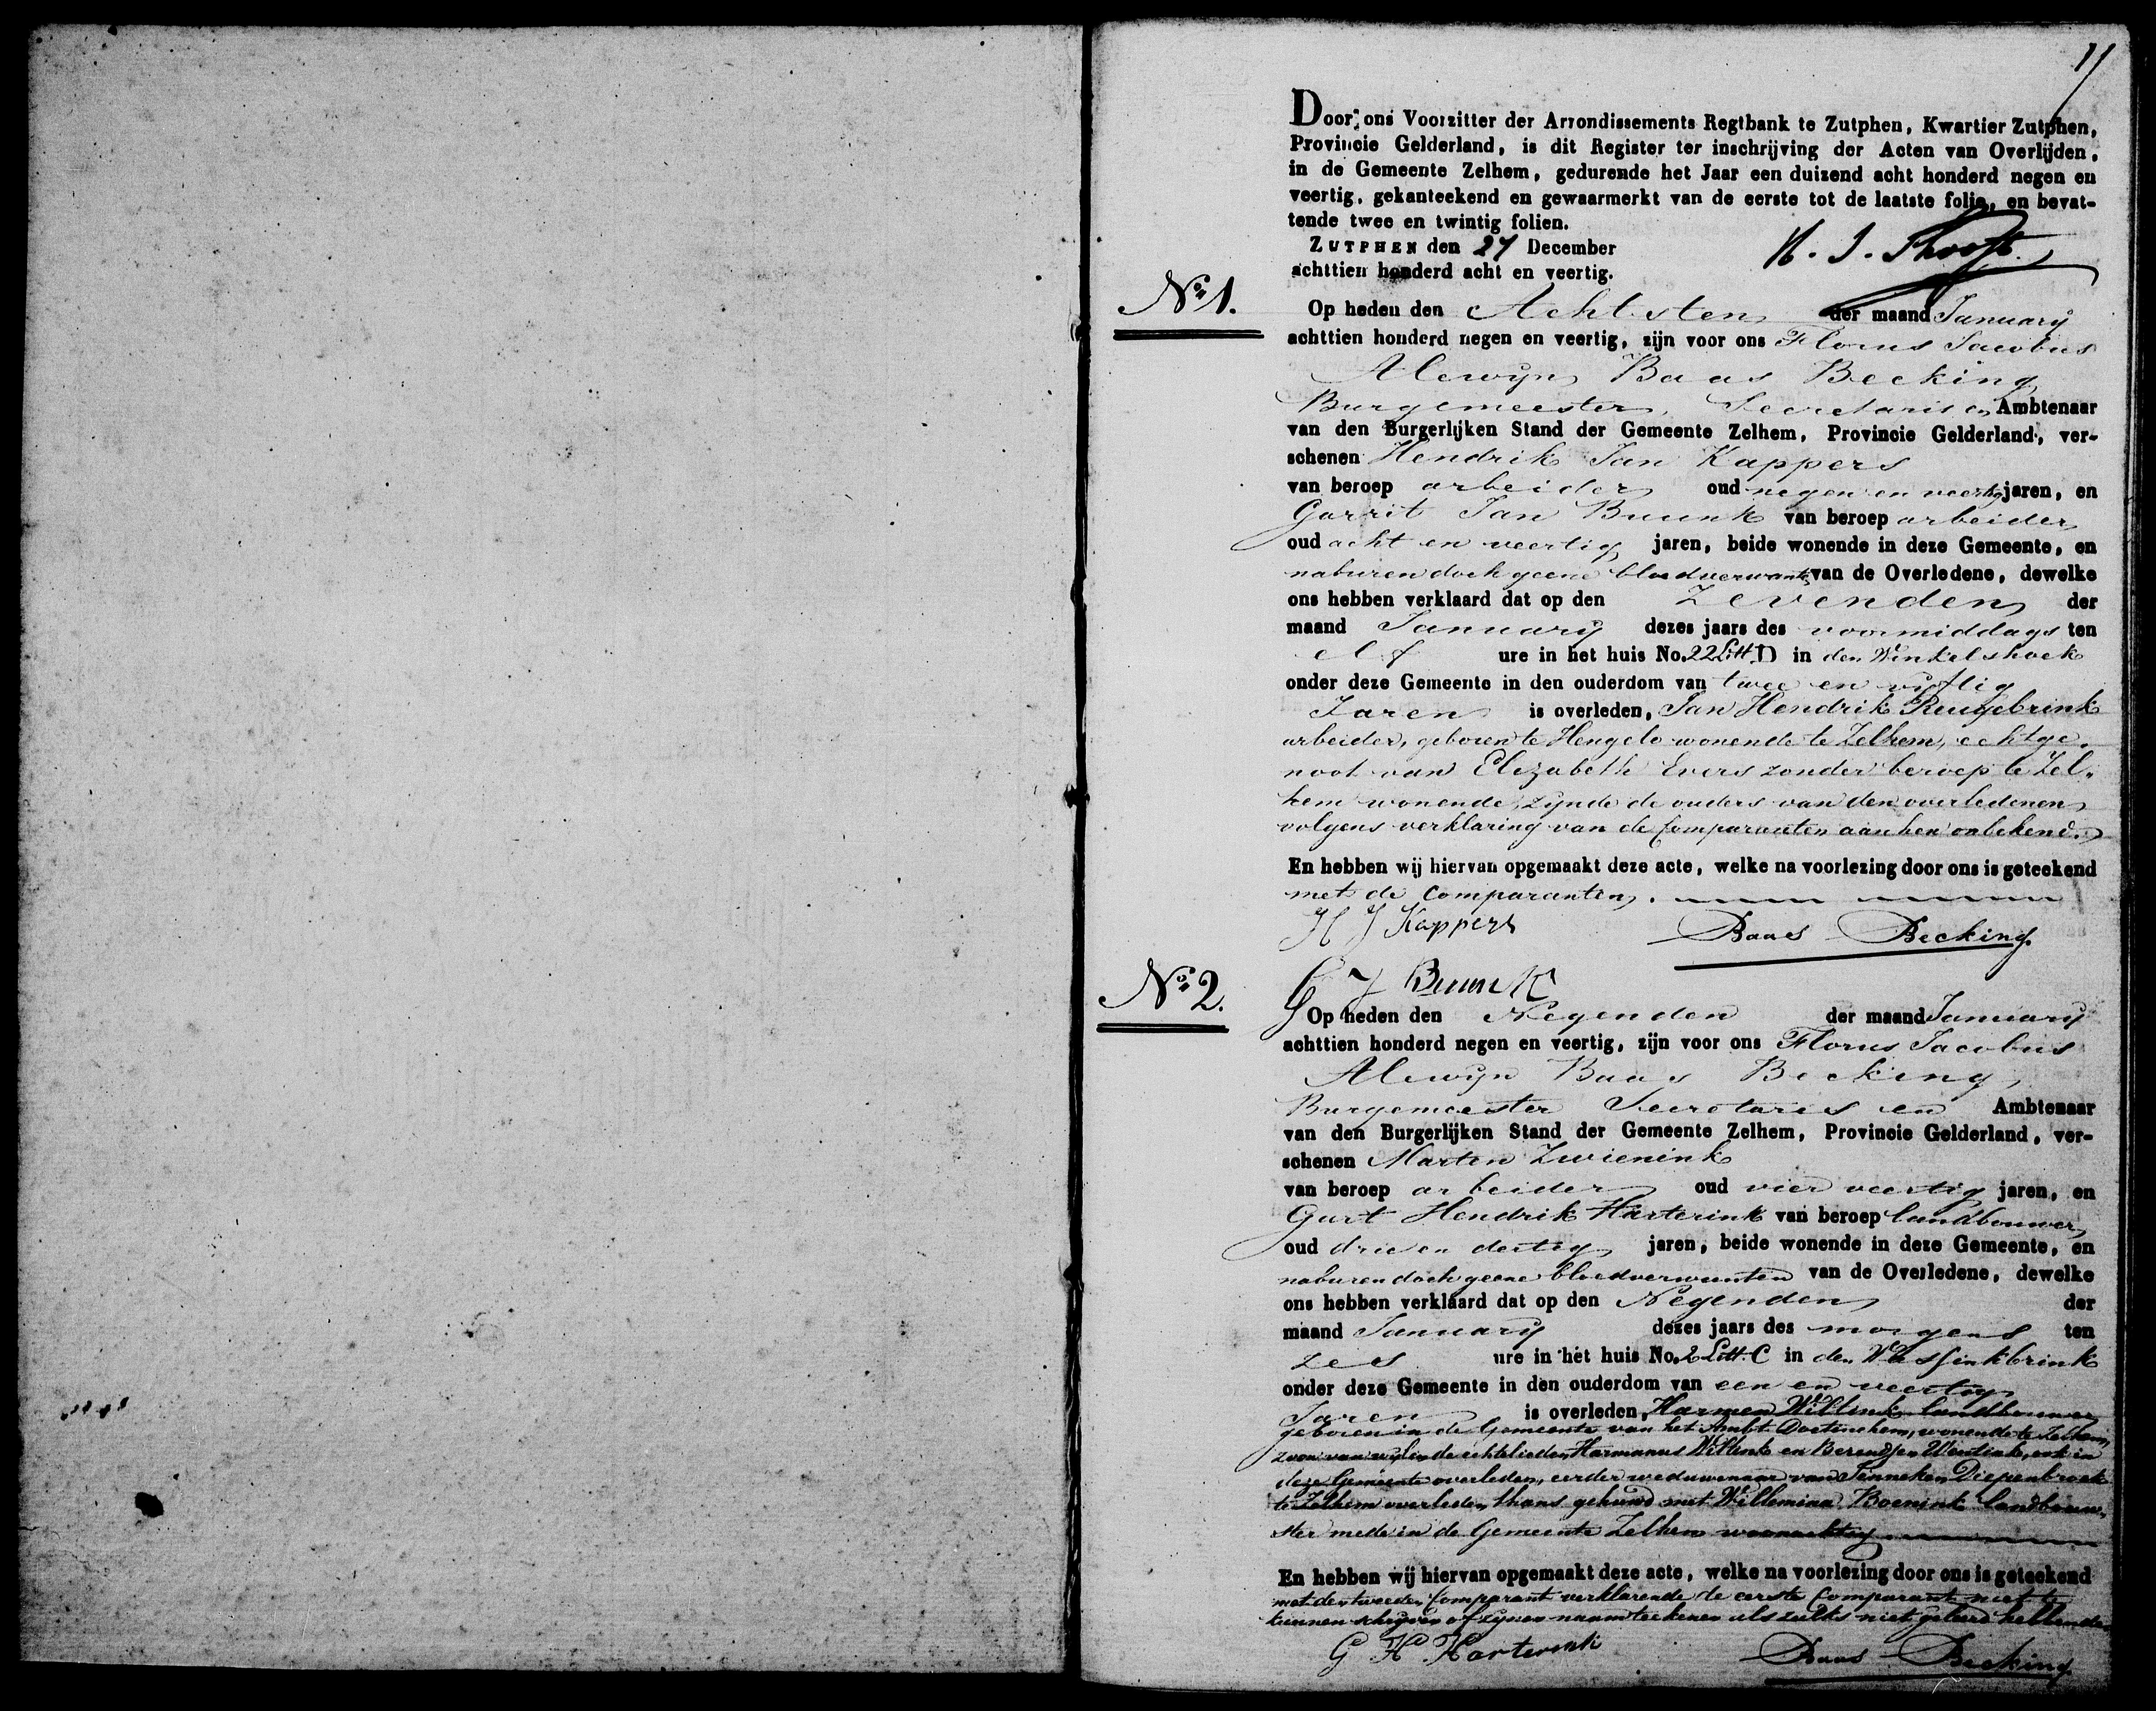 11
Door ons Voorzitter der Arrondissements Regtbank te Zutphen, Kwartier Zutphen,
Provincie Gelderland, is dit Register ter inschrijving der Acten van Overlijden,
in de Gemeente Zelhem, gedurende het Jaar een duizend acht honderd negen en
veertig, gekanteekend en gewaarmerkt van de eerste tot de laatste folie, en bevat-
tende twee en twintig folien.
ZUTPHEN den 27 December
achttien honderd acht en veertig.
No. 1.
Op heden den Achtsten der maand January
achttien honderd negen en veertig, zijn voor ons Florus Jacobus
Alewyn Baas Becking
Burgemeester, Secretaris en Ambtenaar
van den Burgerlijken Stand der Gemeente Zelhem, Provincie Gelderland, ver-
schenen Hendrik Jan Kappers
van beroep arbeider oud negen en veertig jaren, en
Garrit Jan Buunk van beroep arbeider
oud acht en veertig jaren, beide wonende in deze Gemeente, en
naburen doch geene bloedverwanten van de Overledene, dewelke
ons hebben verklaard dat op den Zevenden der
maand January dezes jaars des voormiddags ten
elf ure in het huis No. 22 Litt. D in den Winkelshoek
onder deze Gemeente in den ouderdom van twee en vyftig
Jaren is overleden, Jan Hendrik Ruugebrink
arbeider, geboren te Hengelo wonende te Zelhem, echtge-
noot van Elizabeth Evers zonder beroep te Zel-
hem wonende, zynde de ouders van den overledenen
volgens verklaring van de Comparanten aan hen onbekend.
En hebben wij hiervan opgemaakt deze acte, welke na voorlezing door ons is geteekend
met de Comparanten.
H J Kappers Baas Becking
G J Buunk
No. 2.
Op heden den Negenden der maand January
achttien honderd negen en veertig, zijn voor ons Florus Jacobus
Alewyn Baas Becking,
Burgemeester Secretaris en Ambtenaar
van den Burgerlijken Stand der Gemeente Zelhem, Provincie Gelderland, ver-
schenen Marten Zwienink
van beroep arbeider oud vier veertig jaren, en
Gart Hendrik Harterink van beroep landbouwer
oud drie en dertig jaren, beide wonende in deze Gemeente, en
naburen doch geene bloedverwanten van de Overledene, dewelke
ons hebben verklaard dat op den Negenden der
maand January dezes jaars des morgens ten
zes ure in het huis No. 2 Litt. C in den Wassinkbrink
onder deze Gemeente in den ouderdom van een en veertig
Jaren is overleden, Harmen Willink landbouwer
geboren in de Gemeente van het Ambt Doetinchem, wonende te Zelhem,
zoon van wylen de echtelieden Harmanus Willink en Berendjen Wentink, ook in
deze Gemeente overleden, eerder weduwenaar van Jenneken Diepenbroek
te Zelhem overleden, thans gehuwd met Willemina Boenink landbouw-
ster mede in de Gemeente Zelhem woonachtig
En hebben wij hiervan opgemaakt deze acte, welke na voorlezing door ons is geteekend
met den tweeden Comparant verklarende de eerste Comparant niet te
kunnen schryven of zynen naam teekenen als zulks niet geleerd hebbende.
G H Harterink Baas Becking